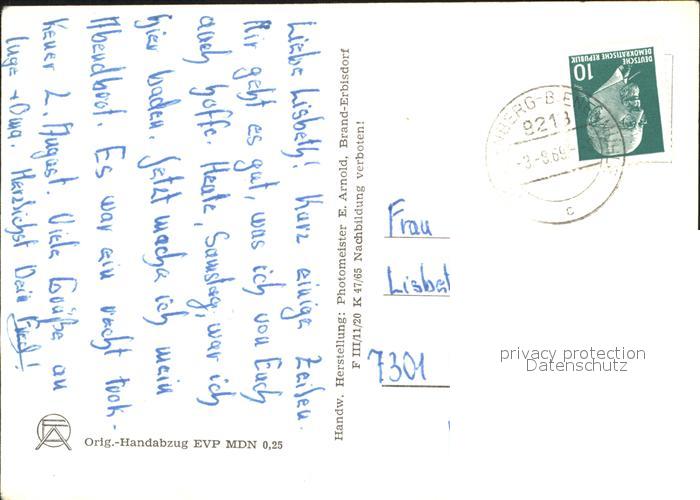 Liebe Lisbeth! Kurz einige Zeilen.
Mir geht es gut, was ich von Euch
auch hoffe. Heute, Samstag, war ich
hier baden. Jetzt mache ich mein
Abendbrot. Es war ein recht trok-
kener 2. August. Viele Grüße an
Inge + Oma. Herzlichst Dein
Handw. Herstellung: Photomeister E. Arnold, Brand-Erbisdorf
F III/11/20 K 47/65 Nachbildung verboten!
Orig.-Handabzug EVP MDN 0,25
DEUTSCHE
DEMOKRATISCHE REPUBLIK
10
9213
-3.-8.69-
c
Frau
Lisbet
7301
privacy protection
Datenschutz